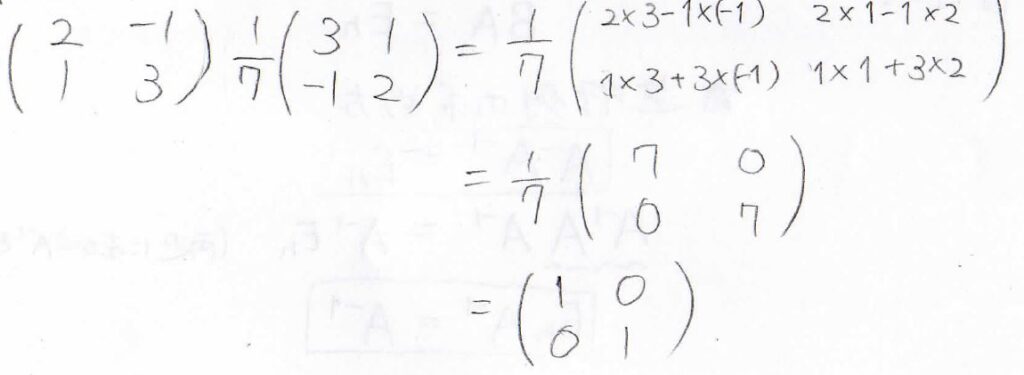 (2 -1; 1 3) 1/7 (3 1; -1 2) = 1/7 (2×3-1×(-1) 2×1-1×2; 1×3+3×(-1) 1×1+3×2)
= 1/7 (7 0; 0 7)
= (1 0; 0 1)